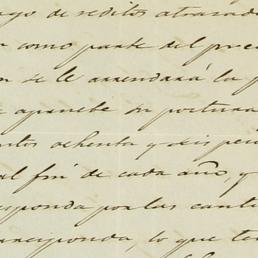 go de reditos atrasado
como parte del prec
n se le arrendará la p
apruebe su postura
ntos ochenta y seis pe
al fin de cada año, y
responda por las cant
rresponda, lo que te